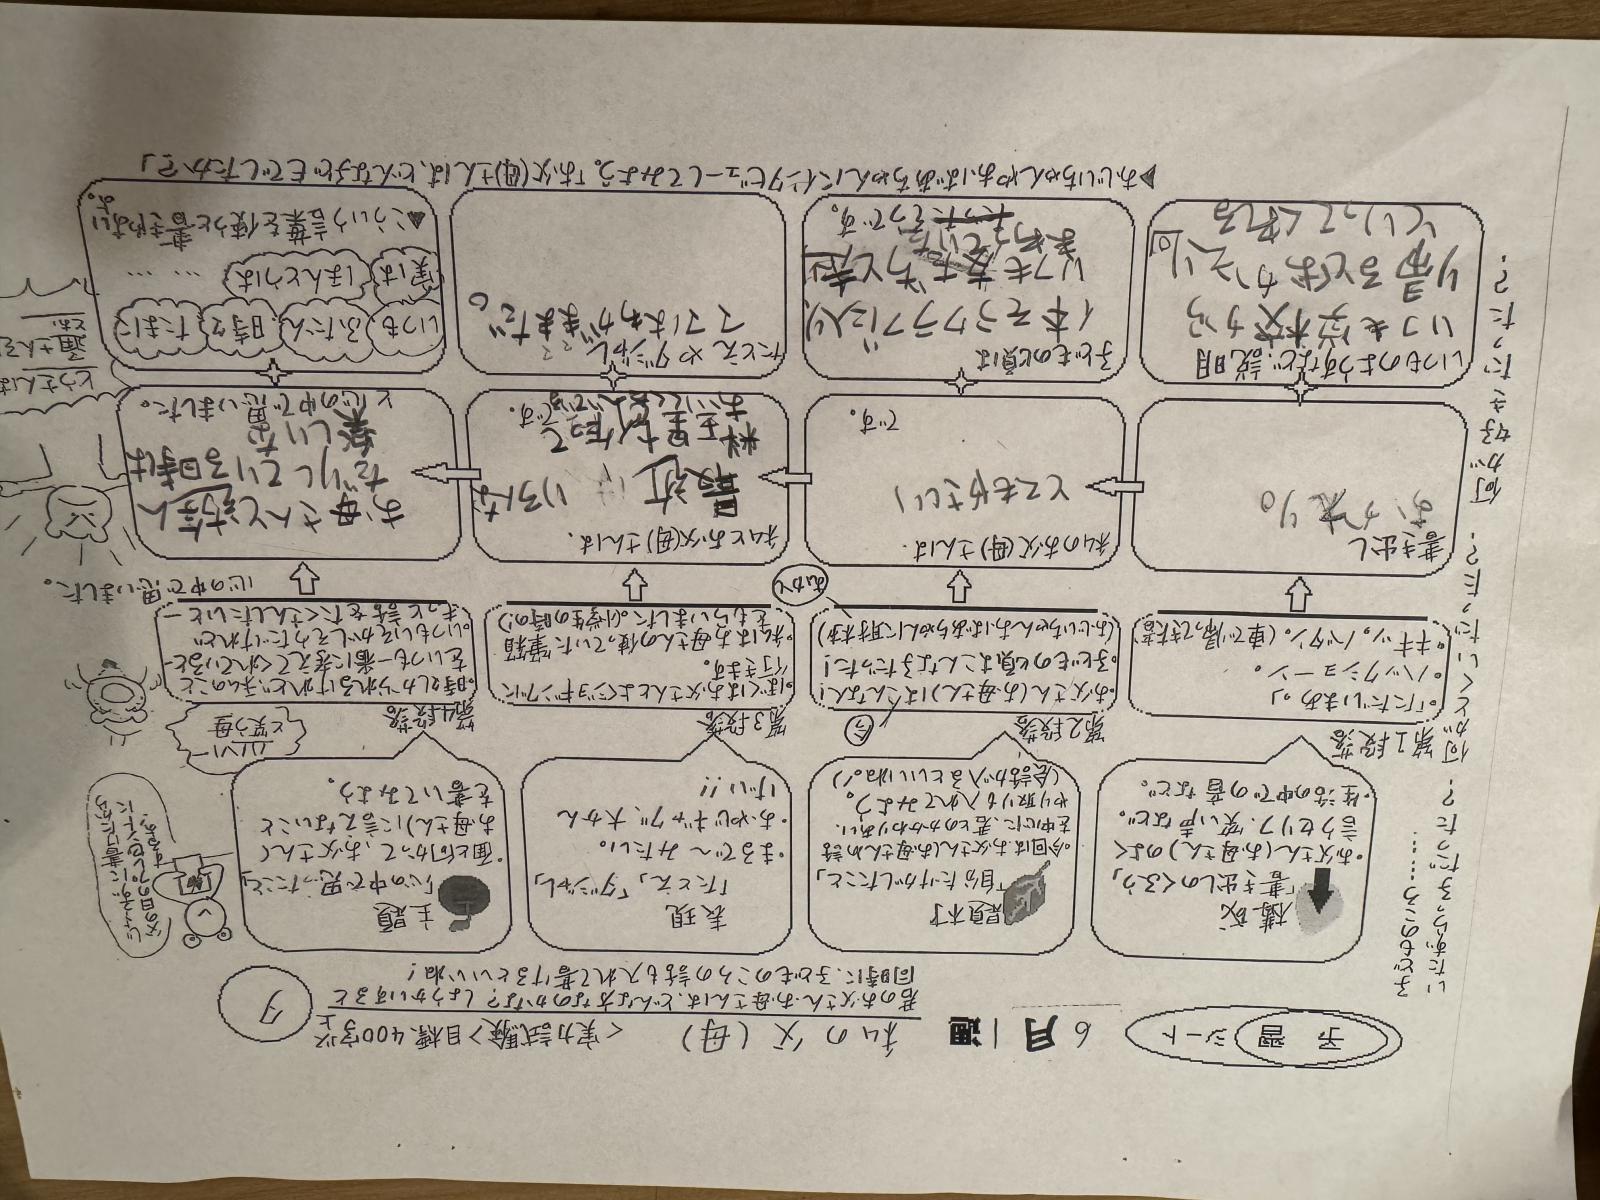 予習シート
6月1週
私の父(母)
<実力試験>目標、400字以上
タ
君のお父さん、お母さんは、どんな方なのかな?しょうかいすると
同時に、子どものころの話も入れて書けるといいね!
構成
「書き出しのくふう」
・お父さん(お母さん)のよく
言うセリフ、笑い声など。
・生活の中での音など。
題材
「自分だけがしたこと」
・今回はお父さん(お母さん)の話
を中心に、君とのかかわりあい、
やり取りも入れてみよう。
(会話が入るといいね!)
表現
「たとえ」「ダジャレ」
・まるで〜みたい。
・おやじギャグ、大かん
げい!!
主題
「心の中で思ったこと」
・面と向かって、お父さん(
お母さん)に言えないこと
を書いてみよう。
父の日のプレゼントに
するよ。
第1段落
・「ただいまあ。」
・ハックショーン。
・キキッ。バタン。(車で帰ってきた音)
第2段落
今
・お父さん(お母さん)はこんな人!
・子どもの頃はこんな子だった!
(おじいちゃんおばあちゃんに聞き取材)
第3段落
・ぼくはお父さんとよくジョギングに
行きます。
・私はお母さんの使っていた筆箱
をもらいました。(小学生の時の!)
第4段落
・時々しかられるけれど、子どものこと
をいつも一番に考えてくれていると
・いつもいそがしそうだけれど、
もっと話をたくさんしたいと
心の中で思いました。
と笑う母
書き出し
おかえり。
私のお父(母)さんは、
とてもやさしい
です。
私とお父(母)さんは、
最近いろんな
料理を作って
おいしく食べて
です。
お母さんと
だりしている時は
楽しいな
と心の中で思いました。
いつものようすなど説明
いつも学校から
帰るとおかえり
といってくれる
子どもの頃は
体そうクラブに入り
いつも友だちと走
まわっていた
そうです。
たとえやダジャレ
ママはわがままだ。
いつも
ふだん
時々
たまに
実は
ほんとうは
… …
▲こういう言葉を使うと書きやすい
よ。
▶おじいちゃんやおばあちゃんにインタビューしてみよう。「お父(母)さんは、どんな子どもでしたか?」
子どものころ……
いたずらっ子だった?
何がとくいだった?
何が好きだった?